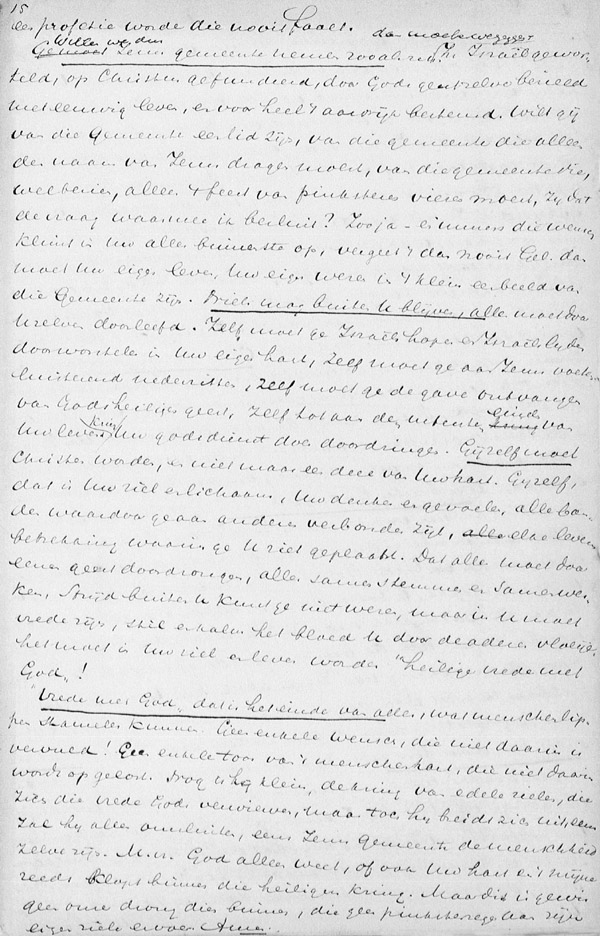 15
een profetie worde die nooit faalt.
Willen wij dan dan moeten we zeggen
Gemeente Jezus gemeente nemen zooals zij In Israël gewor-
teld, op Christus gefundeerd, door God gezield
met eeuwig leven, en voor heel 't aardrijk bestemd. Wilt gij
van die Gemeente een lid zijn, van die gemeente die alleen
den naam van Jezus dragen moest, van die gemeente die,
wel bezien, alleen 't feest van pinksteren vieren moest, zij dat
de vraag waarmee ik besluit? Zoo ja – en immers die wensch
klinkt in Uw aller binnenste op, vergeet 't dan nooit Gel. dan
moet Uw eigen leven, Uw eigen wezen in 't klein een beeld van
die Gemeente zijn. Niets mag buiten U blijven, alles moet door
U zelven doorleefd. Zelf moet ge Israëls hope en Israëls lijden
doorworstelen in Uw eigen hart, zelf moet ge aan Jezus voeten
luisterend nederzitten, zelf moet ge de gave ontvangen
van Gods heiligen geest, zelf tot aan de uitersten van
Uw levenskring Uw godsdienst doen doordringen. Gij zelf moet
Christen worden, en niet maar een deel van Uw hart. Gij zelf,
dat is Uw ziel en lichaam, Uw denken en gevoelen, alle ban-
den waardoor ge aan anderen verbonden zijt, alle elke levens
betrekking waarin ge U ziet geplaatst. Dat alles moet door
eenen geest doordrongen, alles samenstemmen en samenwer-
ken, Strijd buiten U kunt ge niet weren, maar in U moet
vrede zijn, stil en kalm het bloed U door de aderen vloeien
het moet in Uw ziel en leven worden "heilige vrede met
God„!
"Vrede met God„ dat is het einde van alles, wat menschenlip-
pen stamelen kunnen. Geen enkele wensch, die niet daarin is
vervuld! Geen enkele toon van 't menschenhart, die niet daarin
wordt opgelost. Nog is hij klein, de kring van edele zielen, die
zich die vrede Gods verwierven, maar toch hij breidt zich uit, eens
zal hij alles omsluiten, eens Jezus gemeente de menschheid
zelve zijn. M. vr. God alleen weet, of ook Uw hart en 't mijne
reeds klopt binnen die heiligen kring. Maar dit is gewis
geen onzer drong dien binnen, die geen pinksterzegen aan zijn
eigen ziele ervoer Amen.